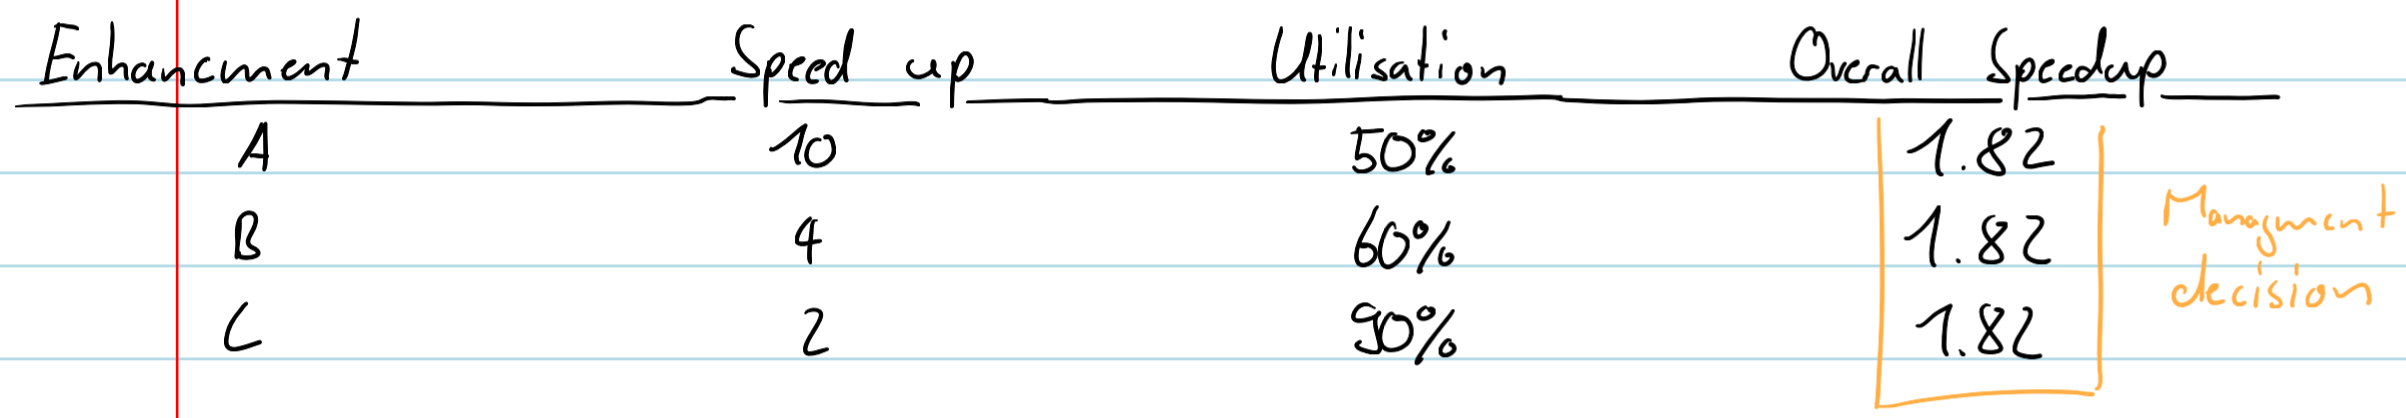 Enhancment Speed up Utilisation Overall Speedup
A 10 50% 1.82
B 4 60% 1.82
C 2 90% 1.82
Managment
decision